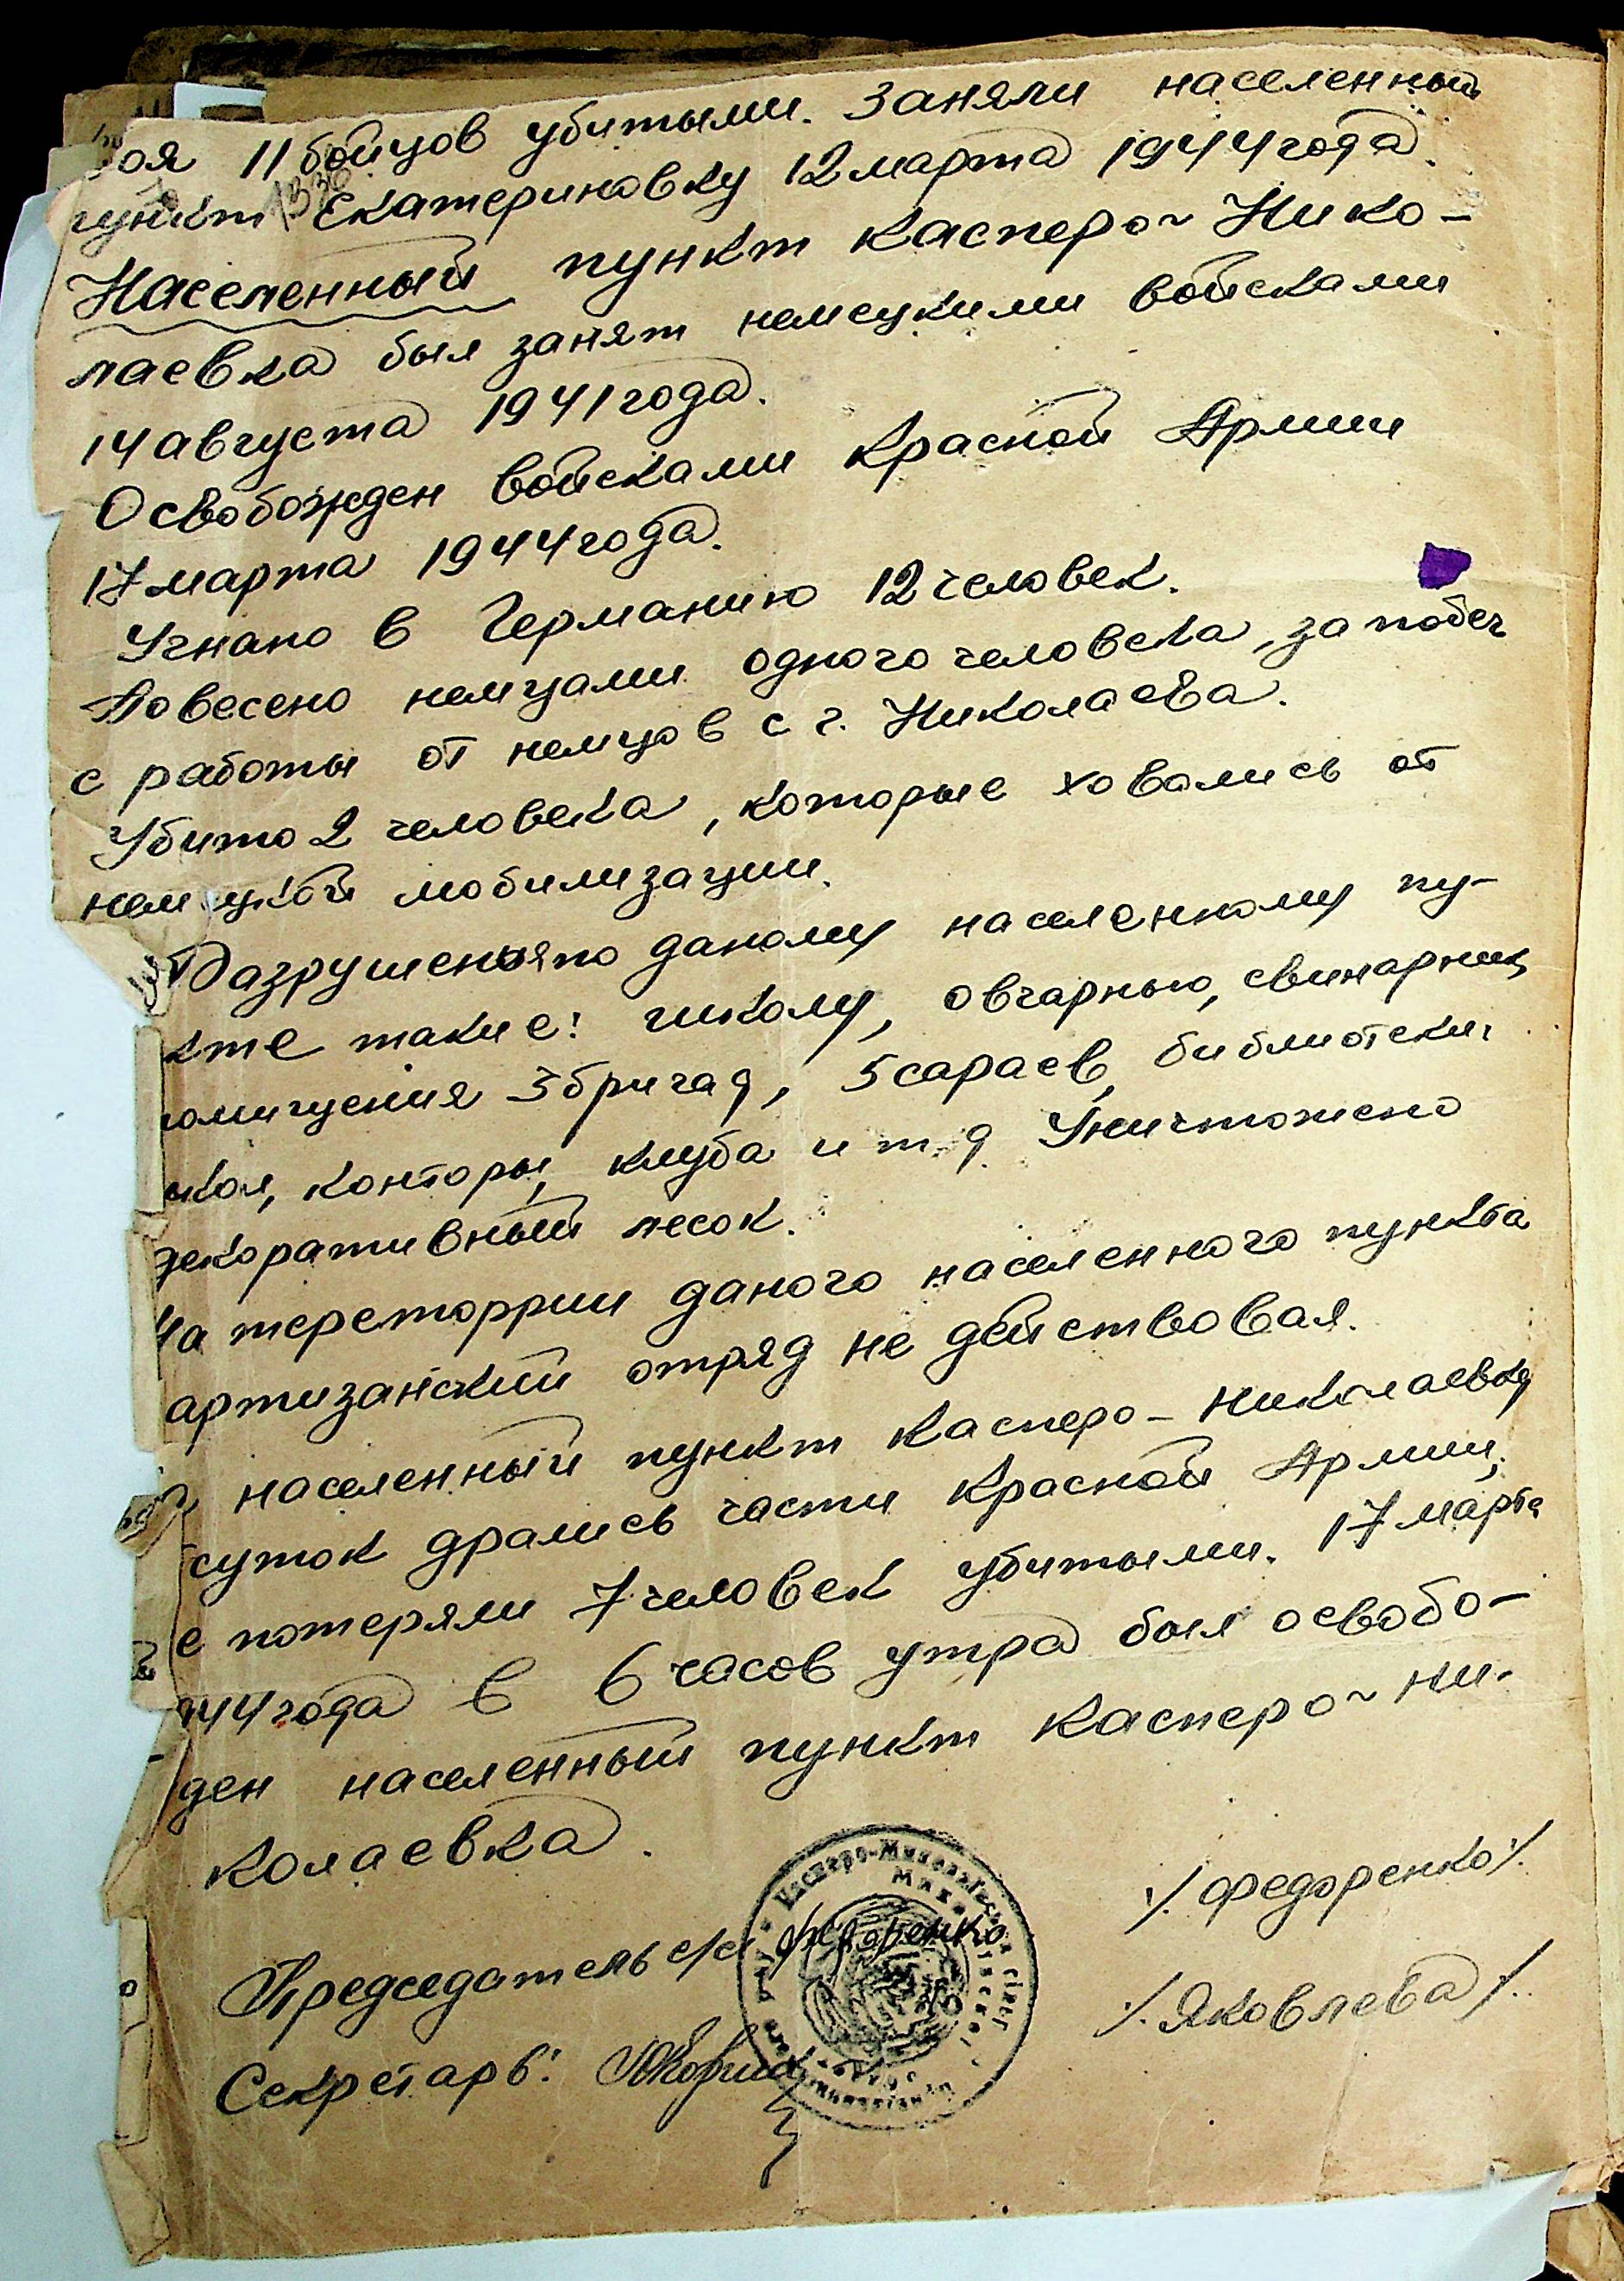 роя 11 бойцов убитыми. Заняли населенный
пункт Екатериновку 12 марта 1944 года.
Населенный пункт Касперо-Нико-
лаевка был занят немецкими войсками
14 августа 1941 года.
Освобожден войсками Красной Армии
17 марта 1944 года.
Угнано в Германию 12 человек.
Повесено немцами одного человека, за побег
с работы от немцов с г. Николаева.
Убито 2 человека, которые ховались от
немецкой мобилизации.
Разрушения по даному населенному пу-
нкте такие: школу, овчарню, свинарник,
омищения 3 бригад, 5 сараев, библиотеки,
школ, конторы, клуба и т.д. Уничтожено
декоративный лесок.
На тереторрии даного населенного пункта
артизанский отряд не действовал.
населенный пункт Касперо-Николаевку
суток дрались части Красной Армии,
е потеряли 7 человек убитыми. 17 марта
944 года в 6 часов утра был освобо-
ден населенный пункт Касперо-Ни-
колаевка.
Председатель с/с Федоренко /Федоренко/.
Секретарь: /Яковлева/.